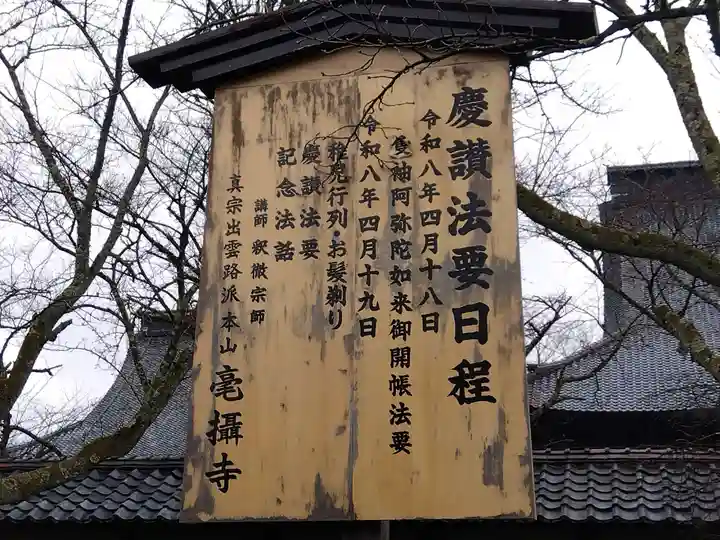 慶讃法要日程
令和八年四月十八日
隻袖阿弥陀如来御開帳法要
令和八年四月十九日
稚児行列・お髪剃り
慶讃法要
記念法話
講師 釈徹宗師
真宗出雲路派本山 毫攝寺